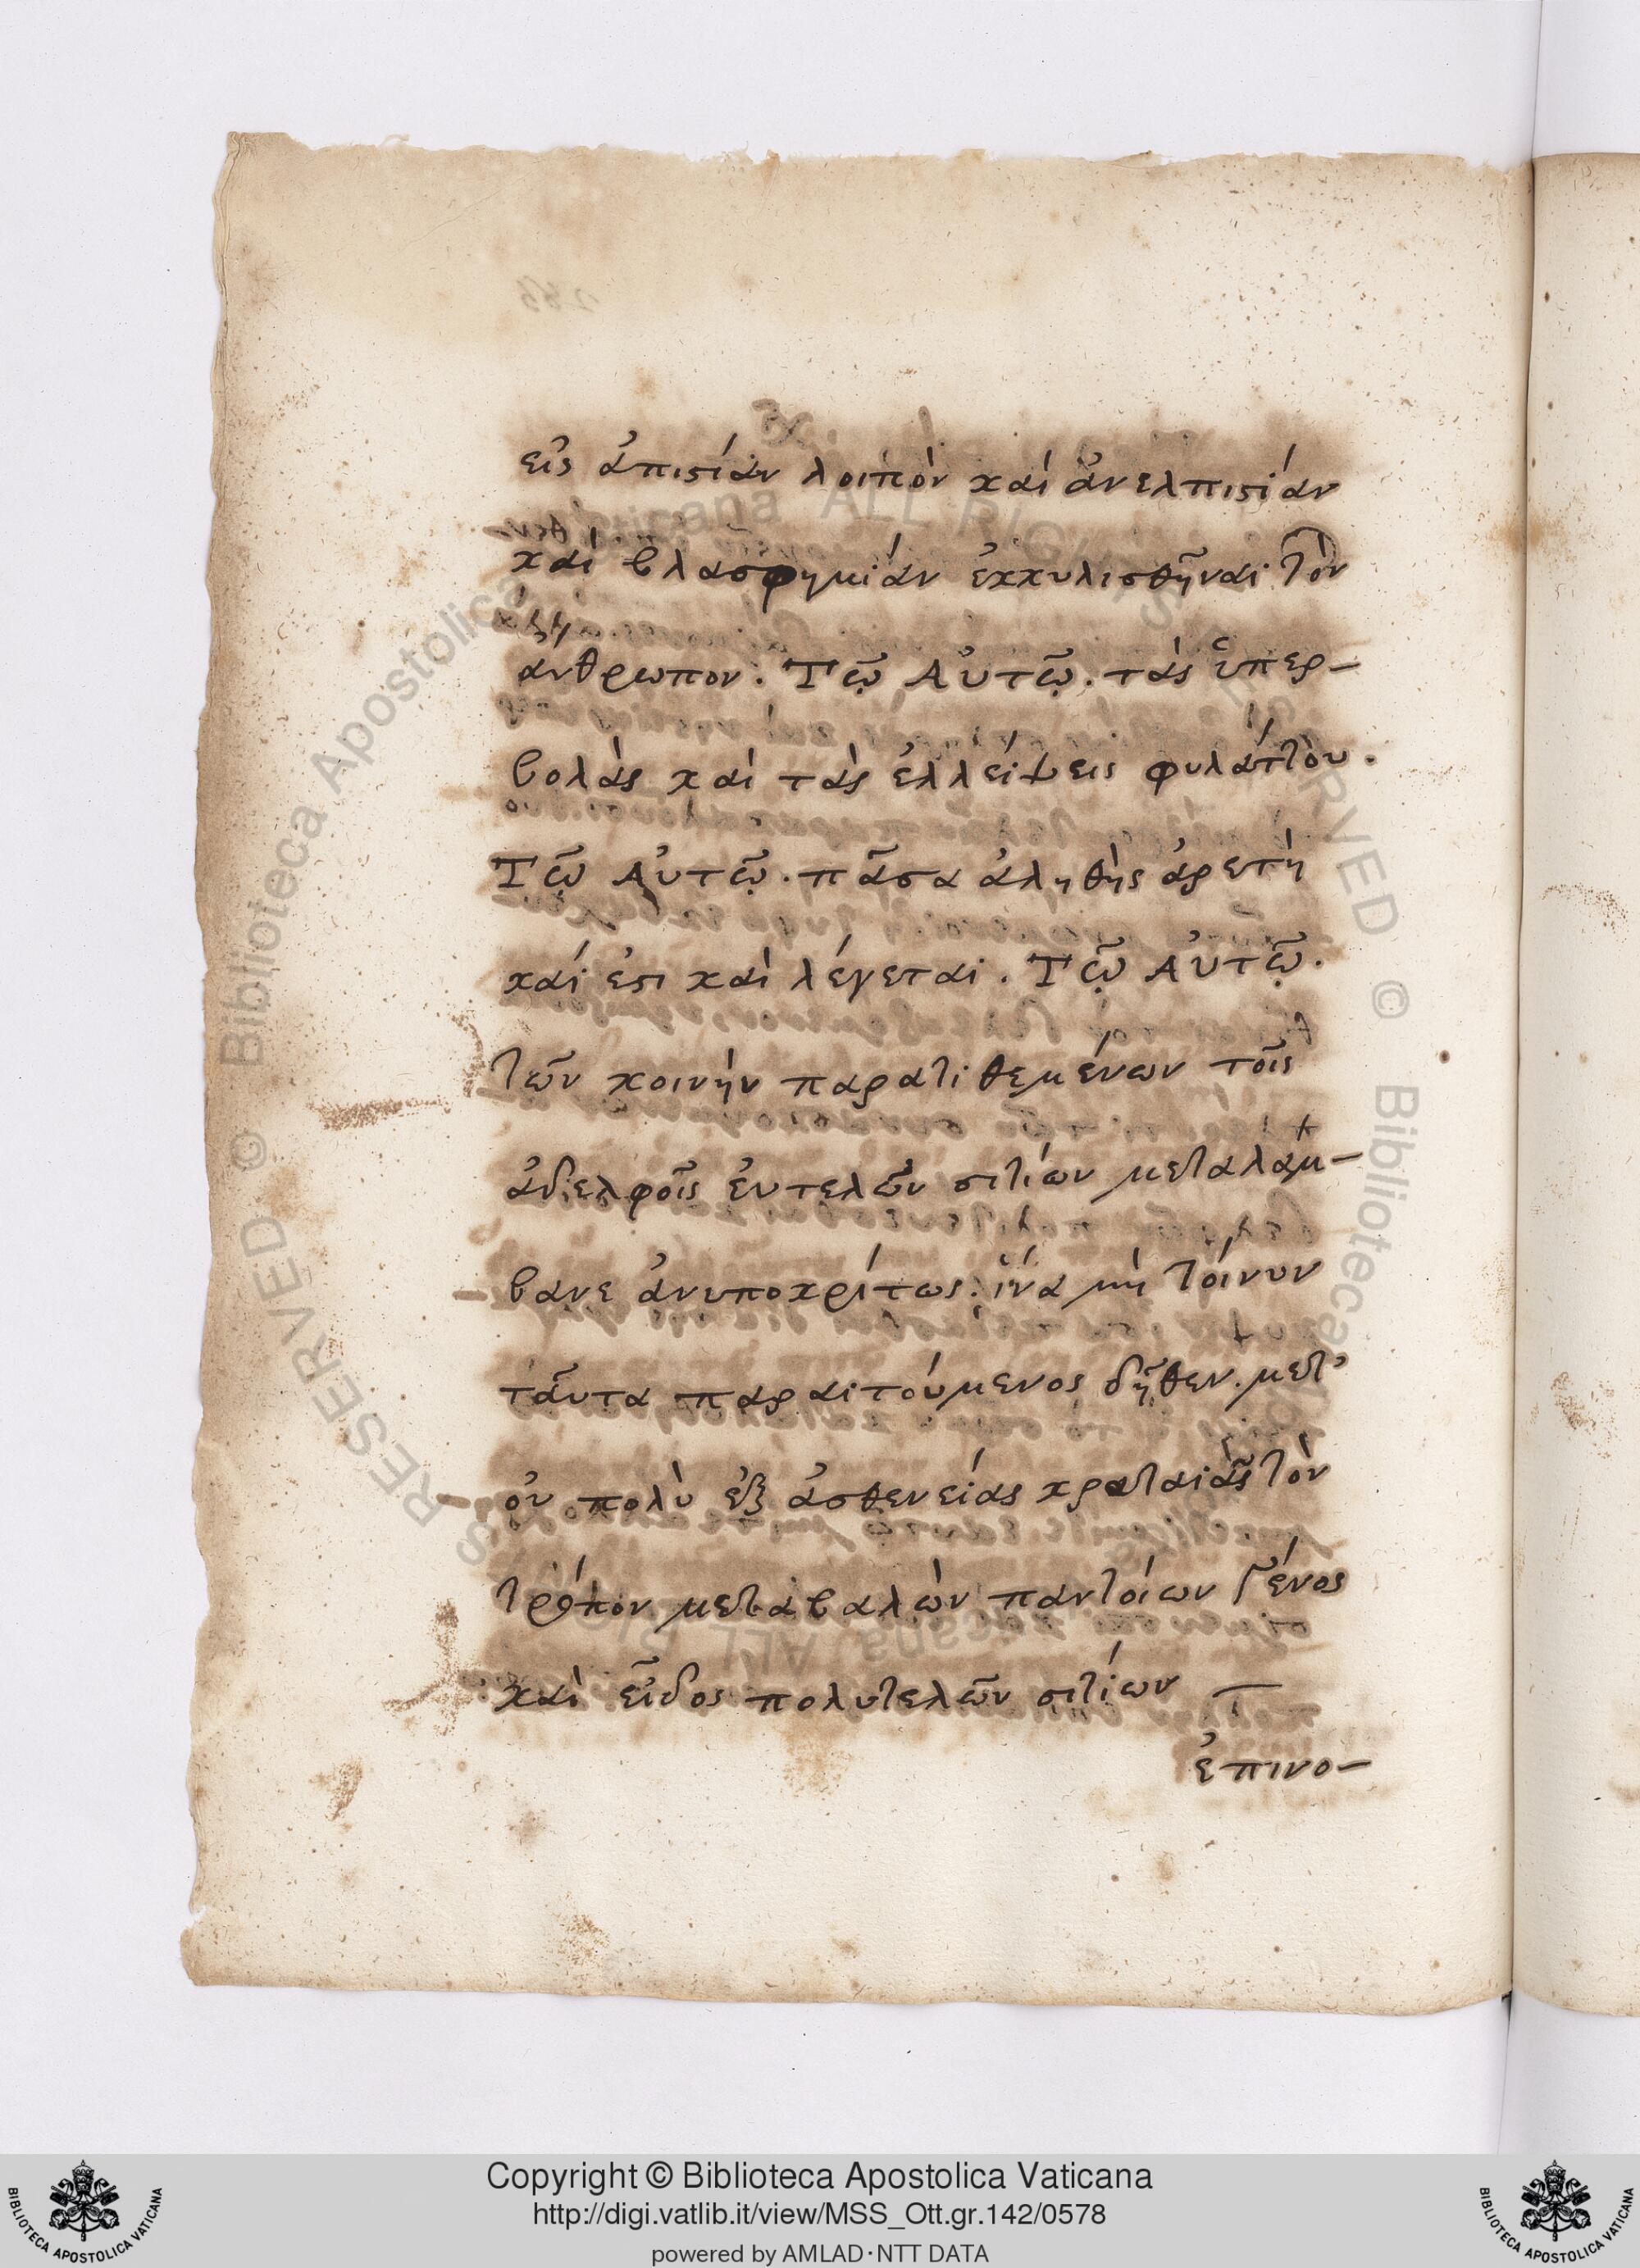 εἰς ἀπιστίαν λοιπὸν καὶ ἀνελπιστίαν
καὶ βλασφημίαν ἐκκυλισθῆναι τὸν
ἄνθρωπον. Τῷ Αὐτῷ. τὰς ὑπερ-
βολὰς καὶ τὰς ἐλλείψεις φυλάττου.
Τῷ Αὐτῷ. πᾶσα ἀληθὴς ἀρετὴ
καί ἐστι καὶ λέγεται. Τῷ Αὐτῷ.
τῶν κοινὴν παρατιθεμένων τοῖς
ἀδελφοῖς ἐυτελῶν σιτίων μεταλάμ-
βανε ἀνυποκρίτως. ἵνα μὴ τοίνυν
ταῦτα παραιτούμενος δῆθεν. μετ'
οὐ πολὺ ἐξ ἀσθενείας κραταιᾶς τὸν
τρόπον μεταβαλὼν παντοίων γένος
καὶ εἶδος πολυτελῶν σιτίων
ἐπινο-
© Biblioteca Apostolica Vaticana ALL RIGHTS RESERVED
© Biblioteca Apostolica Vaticana ALL RIGHTS RESERVED
Copyright © Biblioteca Apostolica Vaticana
http://digi.vatlib.it/view/MSS_Ott.gr.142/0578
powered by AMLAD·NTT DATA
BIBLIOTECA APOSTOLICA VATICANA
BIBLIOTECA APOSTOLICA VATICANA